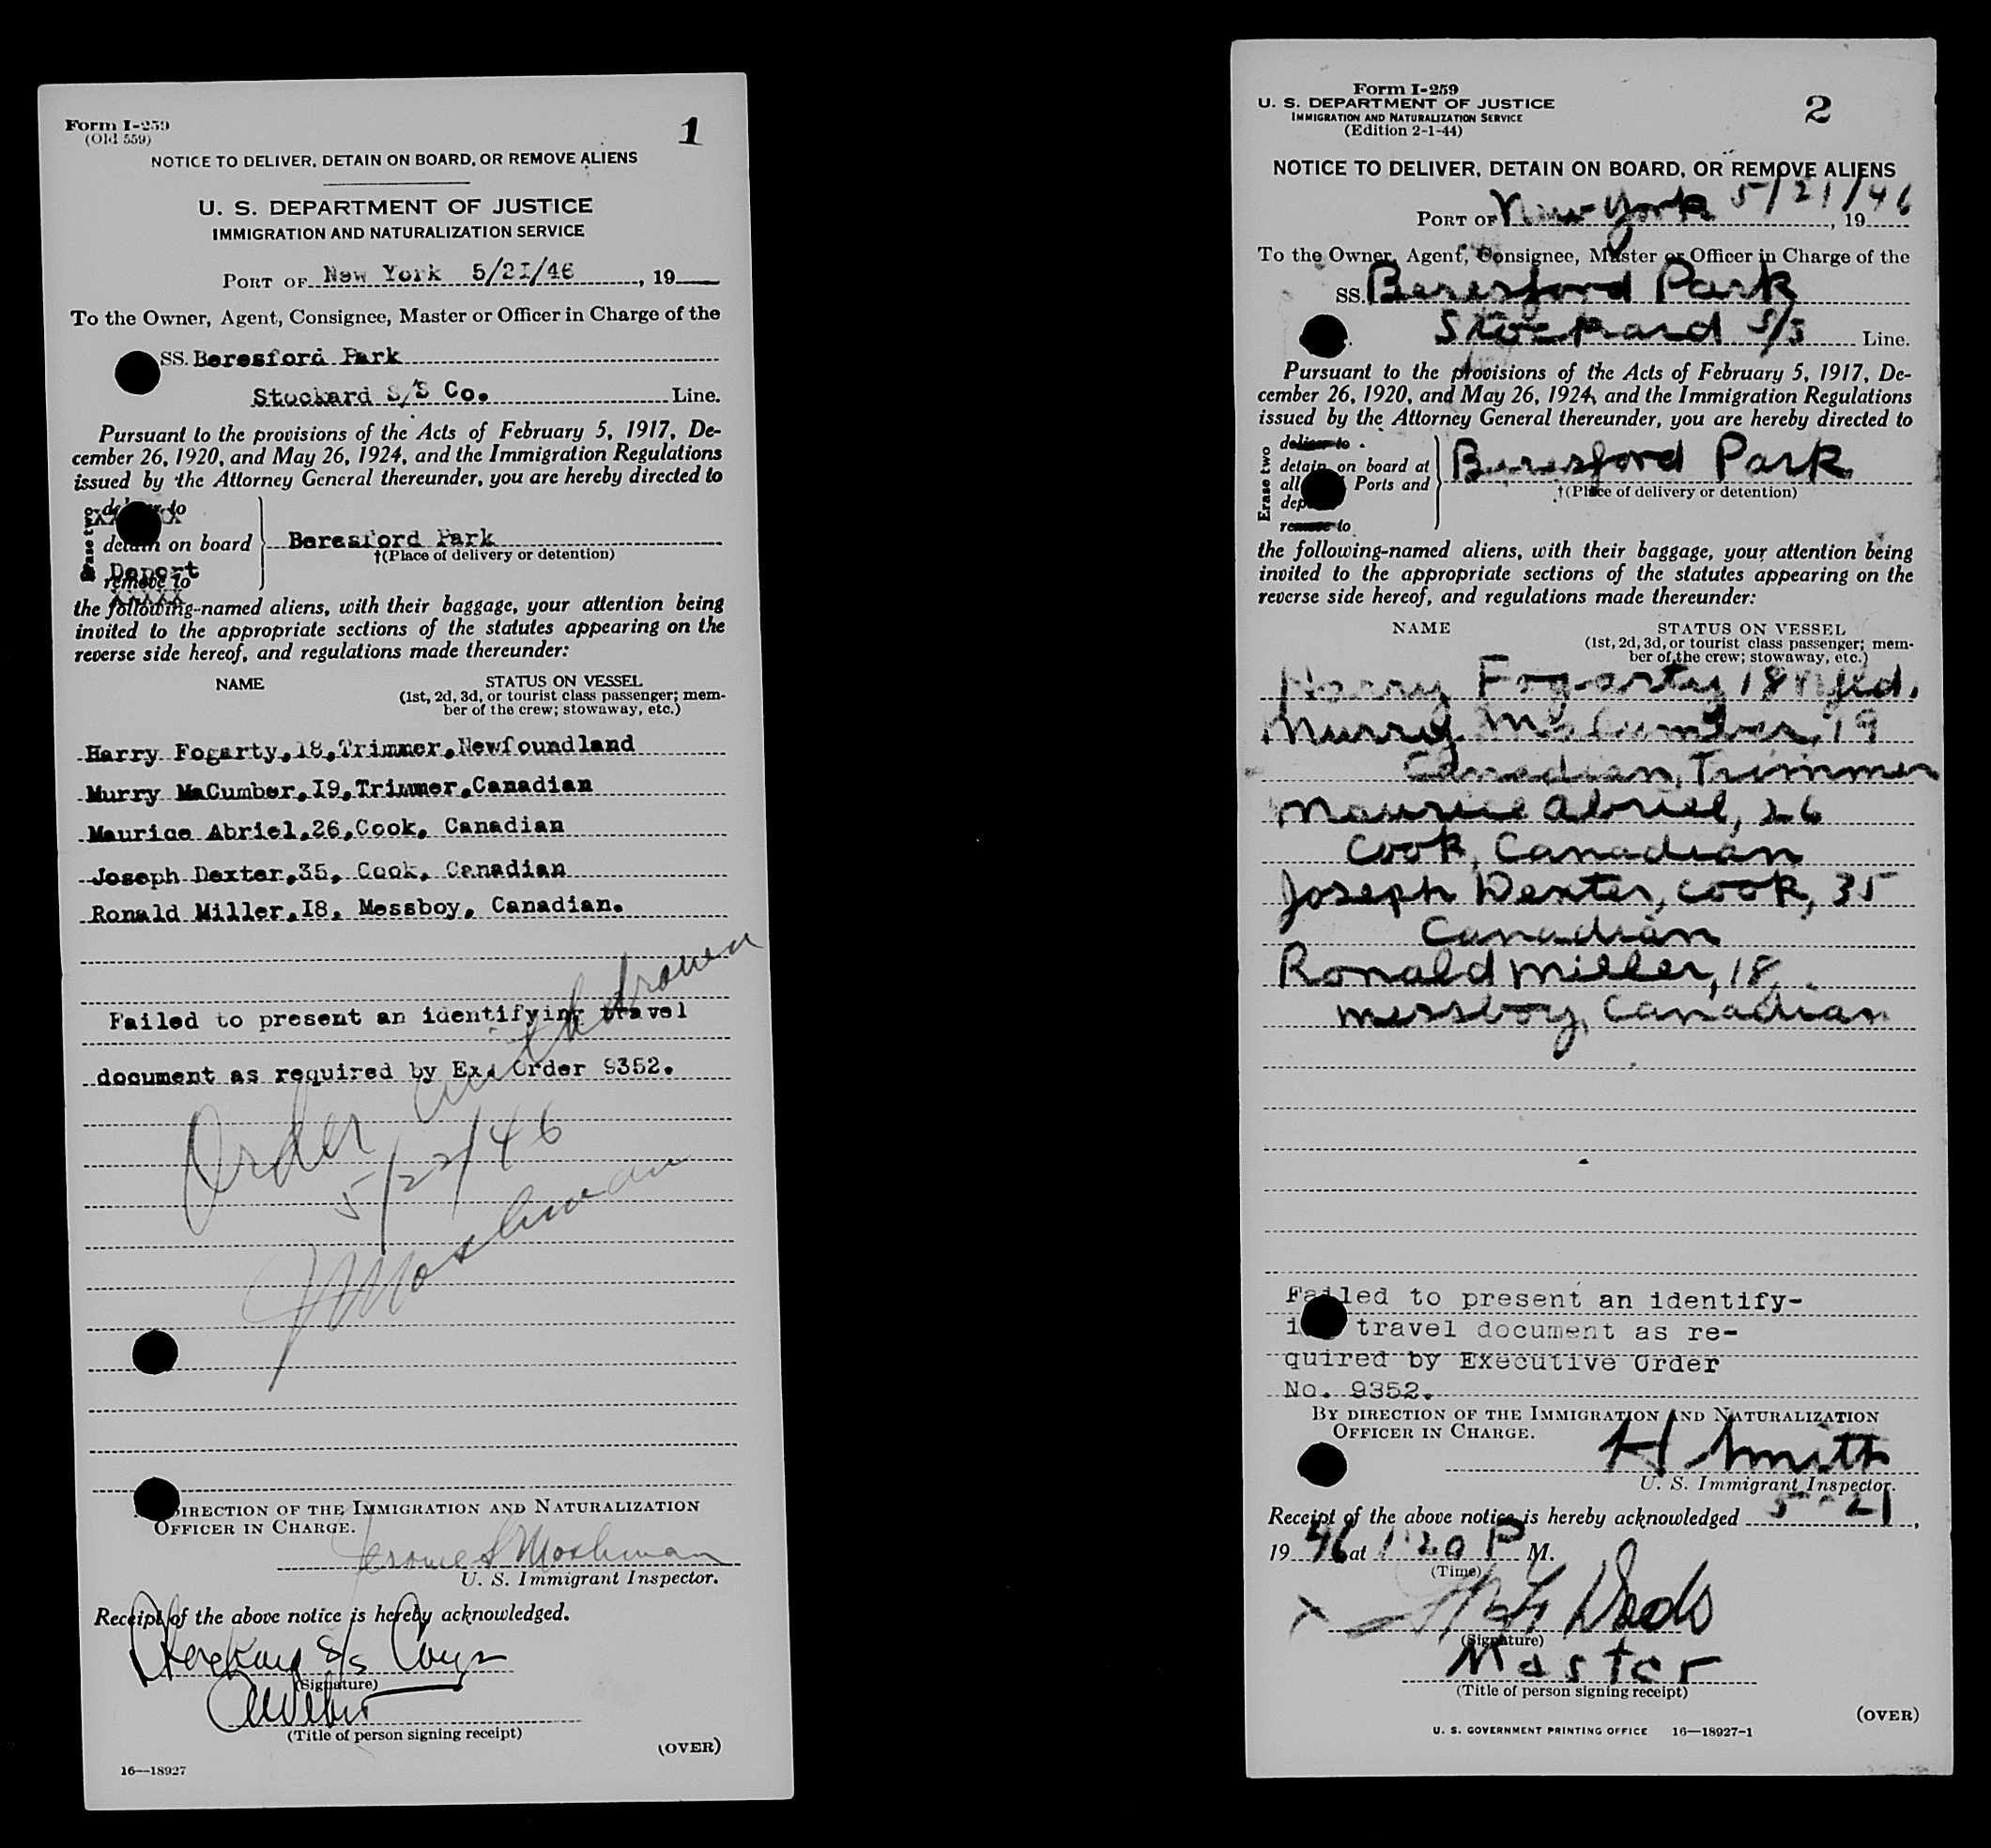 Form I-259
(Old 559)
1
NOTICE TO DELIVER, DETAIN ON BOARD, OR REMOVE ALIENS
U. S. DEPARTMENT OF JUSTICE
IMMIGRATION AND NATURALIZATION SERVICE
PORT OF New York 5/21/46, 19
To the Owner, Agent, Consignee, Master or Officer in Charge of the
SS. Beresford Park
Stockard S/S Co. Line.
Pursuant to the provisions of the Acts of February 5, 1917, De-
cember 26, 1920, and May 26, 1924, and the Immigration Regulations
issued by the Attorney General thereunder, you are hereby directed to
to
detain on board
Beresford Park
†(Place of delivery or detention)
Deport
remove to
the following-named aliens, with their baggage, your attention being
invited to the appropriate sections of the statutes appearing on the
reverse side hereof, and regulations made thereunder:
NAME
STATUS ON VESSEL
(1st, 2d, 3d, or tourist class passenger; mem-
ber of the crew; stowaway, etc.)
Harry Fogarty,18,Trimmer,Newfoundland
Murry MaCumber,I9,Trimmer,Canadian
Maurice Abriel,26,Cook, Canadian
Joseph Dexter,35, Cook, Canadian
Ronald Miller,I8, Messboy, Canadian.
Failed to present an identifying travel
document as required by Ex. Order 9352.
Order withdrawn
5/22/46
J Moshman
DIRECTION OF THE IMMIGRATION AND NATURALIZATION
OFFICER IN CHARGE.
Jerome S Moshman
U. S. Immigrant Inspector.
Receipt of the above notice is hereby acknowledged.
S/S
(Signature)
(Title of person signing receipt)
(OVER)
16—18927
Form I-259
U. S. DEPARTMENT OF JUSTICE
IMMIGRATION AND NATURALIZATION SERVICE
(Edition 2-1-44)
2
NOTICE TO DELIVER, DETAIN ON BOARD, OR REMOVE ALIENS
PORT OF New York 5/21/46, 19
To the Owner, Agent, Consignee, Master or Officer in Charge of the
SS. Beresford Park
Stockard S/S Line.
Pursuant to the provisions of the Acts of February 5, 1917, De-
cember 26, 1920, and May 26, 1924, and the Immigration Regulations
issued by the Attorney General thereunder, you are hereby directed to
Erase two
deliver to
detain on board at
all Ports and
remove to
Beresford Park
†(Place of delivery or detention)
the following-named aliens, with their baggage, your attention being
invited to the appropriate sections of the statutes appearing on the
reverse side hereof, and regulations made thereunder:
NAME
STATUS ON VESSEL
(1st, 2d, 3d, or tourist class passenger; mem-
ber of the crew; stowaway, etc.)
Harry Fogarty 18 Nfld.
Murry MacCumber, 19
Canadian, Trimmer
Maurice Abriel, 26
Cook, Canadian
Joseph Dexter, cook, 35
Canadian
Ronald Miller, 18,
messboy, Canadian
Failed to present an identify-
travel document as re-
quired by Executive Order
No. 9352.
BY DIRECTION OF THE IMMIGRATION AND NATURALIZATION
OFFICER IN CHARGE.
H Smith
U. S. Immigrant Inspector.
Receipt of the above notice is hereby acknowledged 5-21,
1946 at 1:20 P M.
(Time)
X
(Signature)
Master
(Title of person signing receipt)
(OVER)
U. S. GOVERNMENT PRINTING OFFICE 16—18927-1